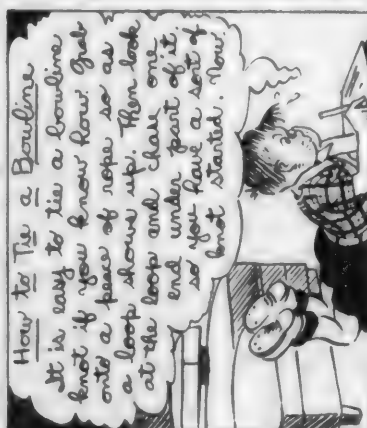 How to Tie a Bowline
It is easy to tie a bowline
knot if you know how. Grab
onto a peace of rope so as
a loop shows up. Then look
at the loop and chase one
end under part of it
so you have a sort of
knot started. Now